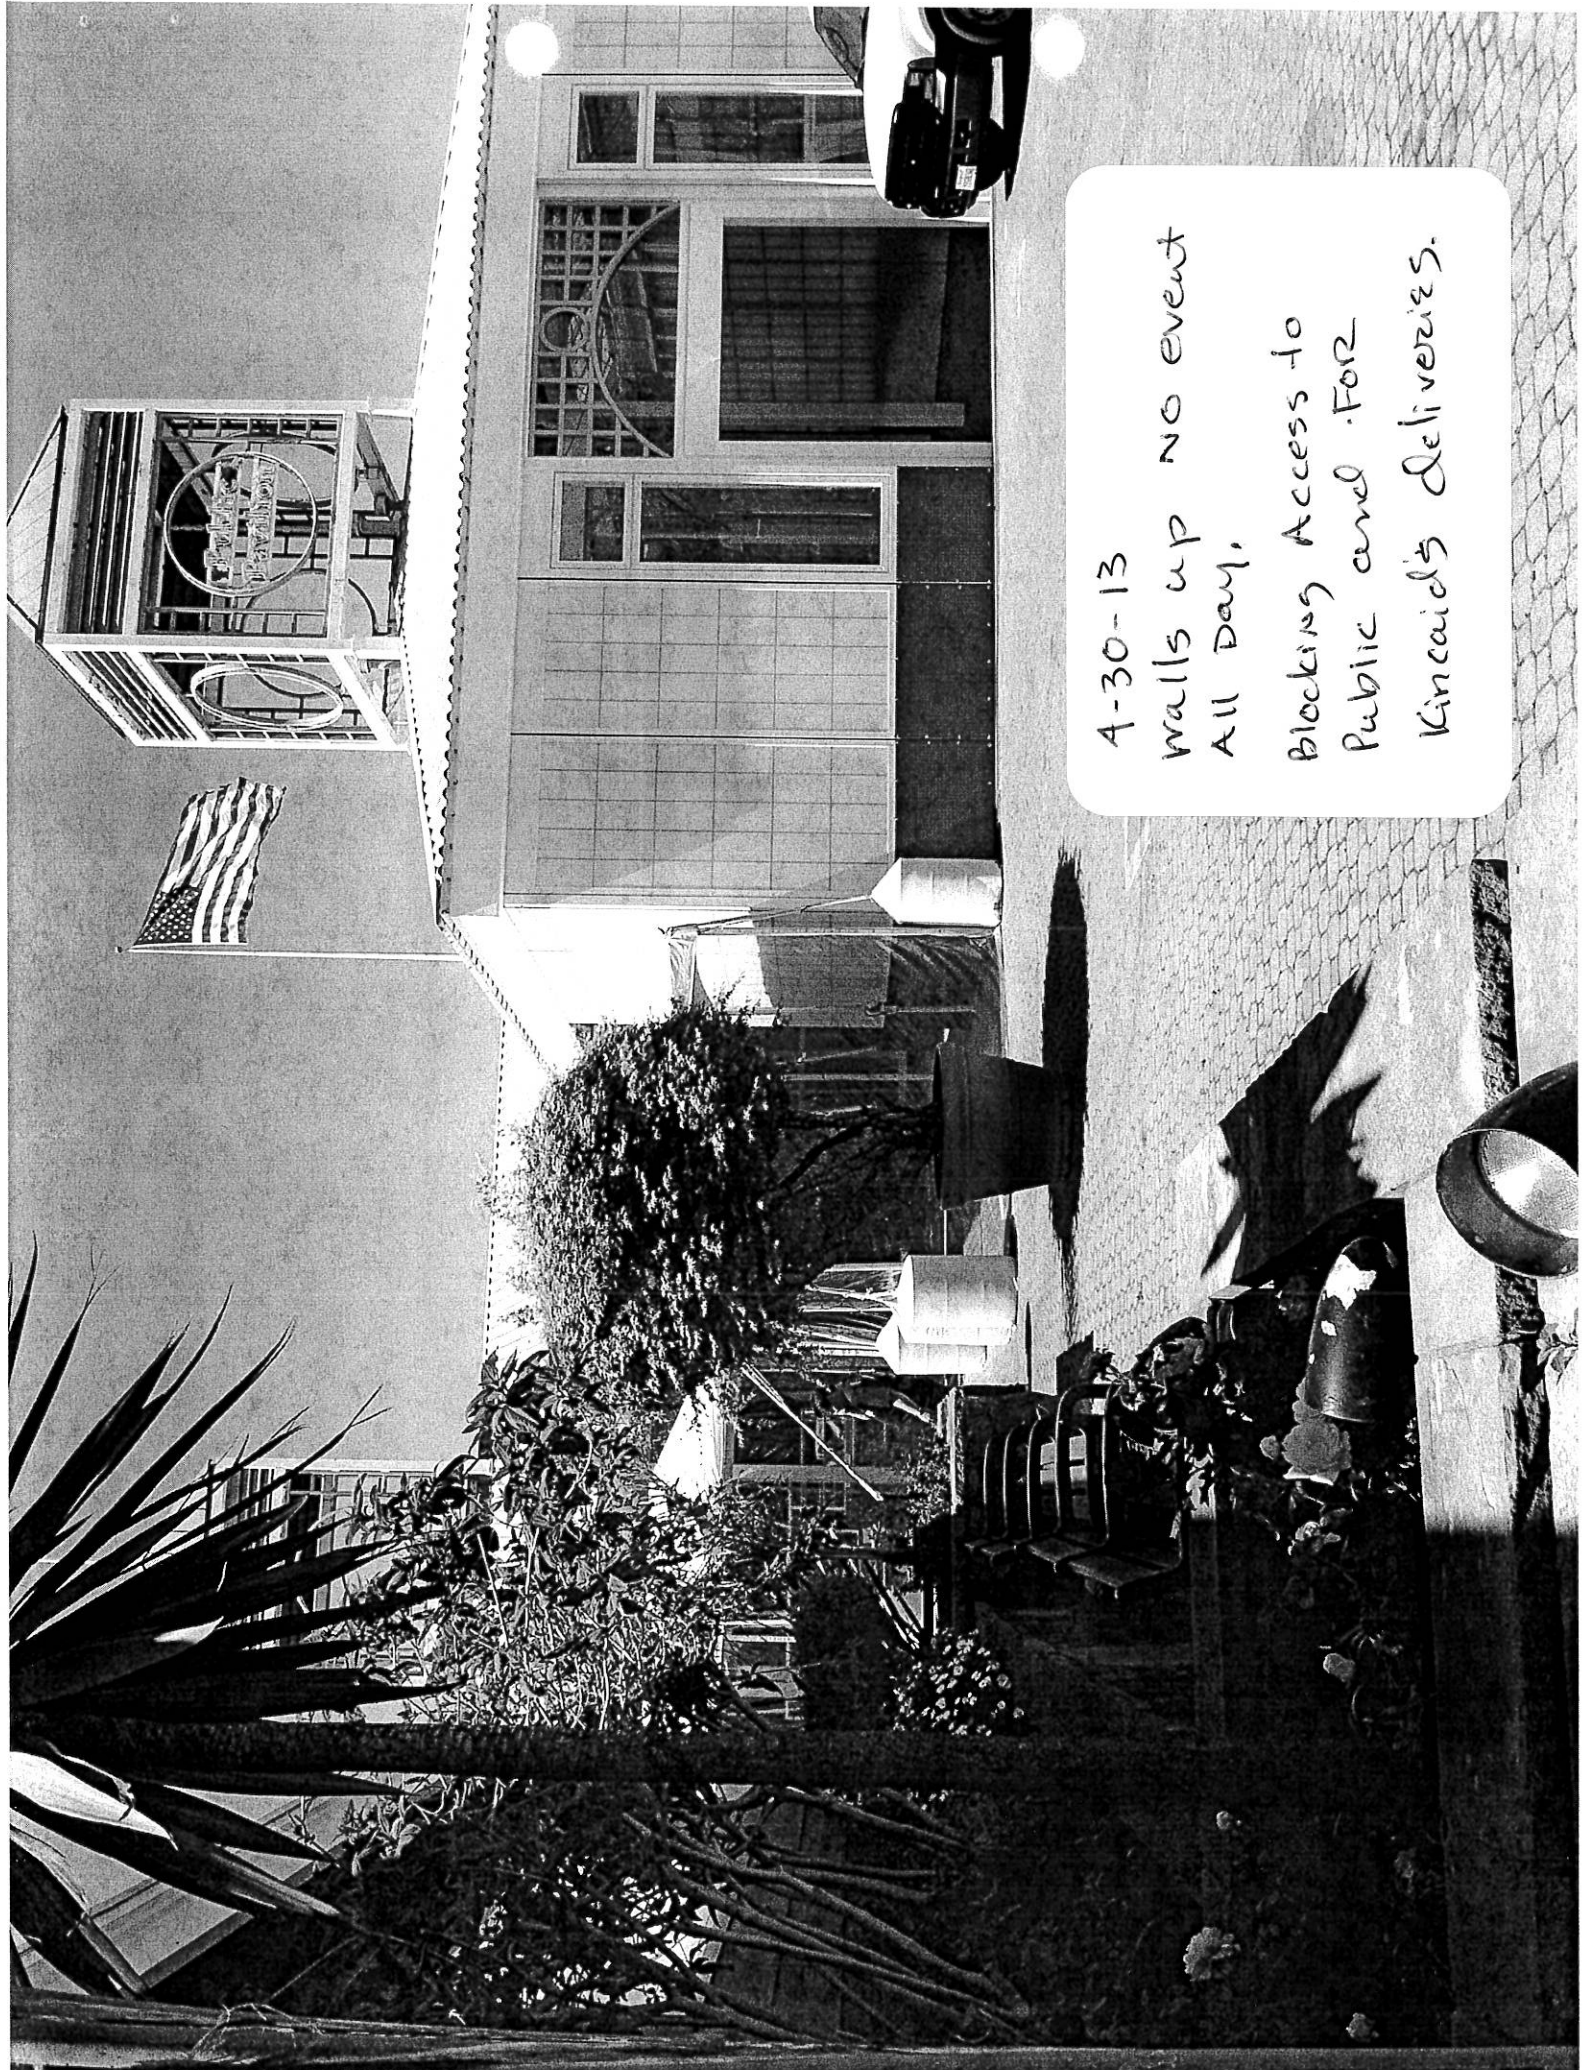 Pavilion
4-30-13
walls up NO event
All Day.
Blocking Access to
Public and For
Kincaid's deliveries.